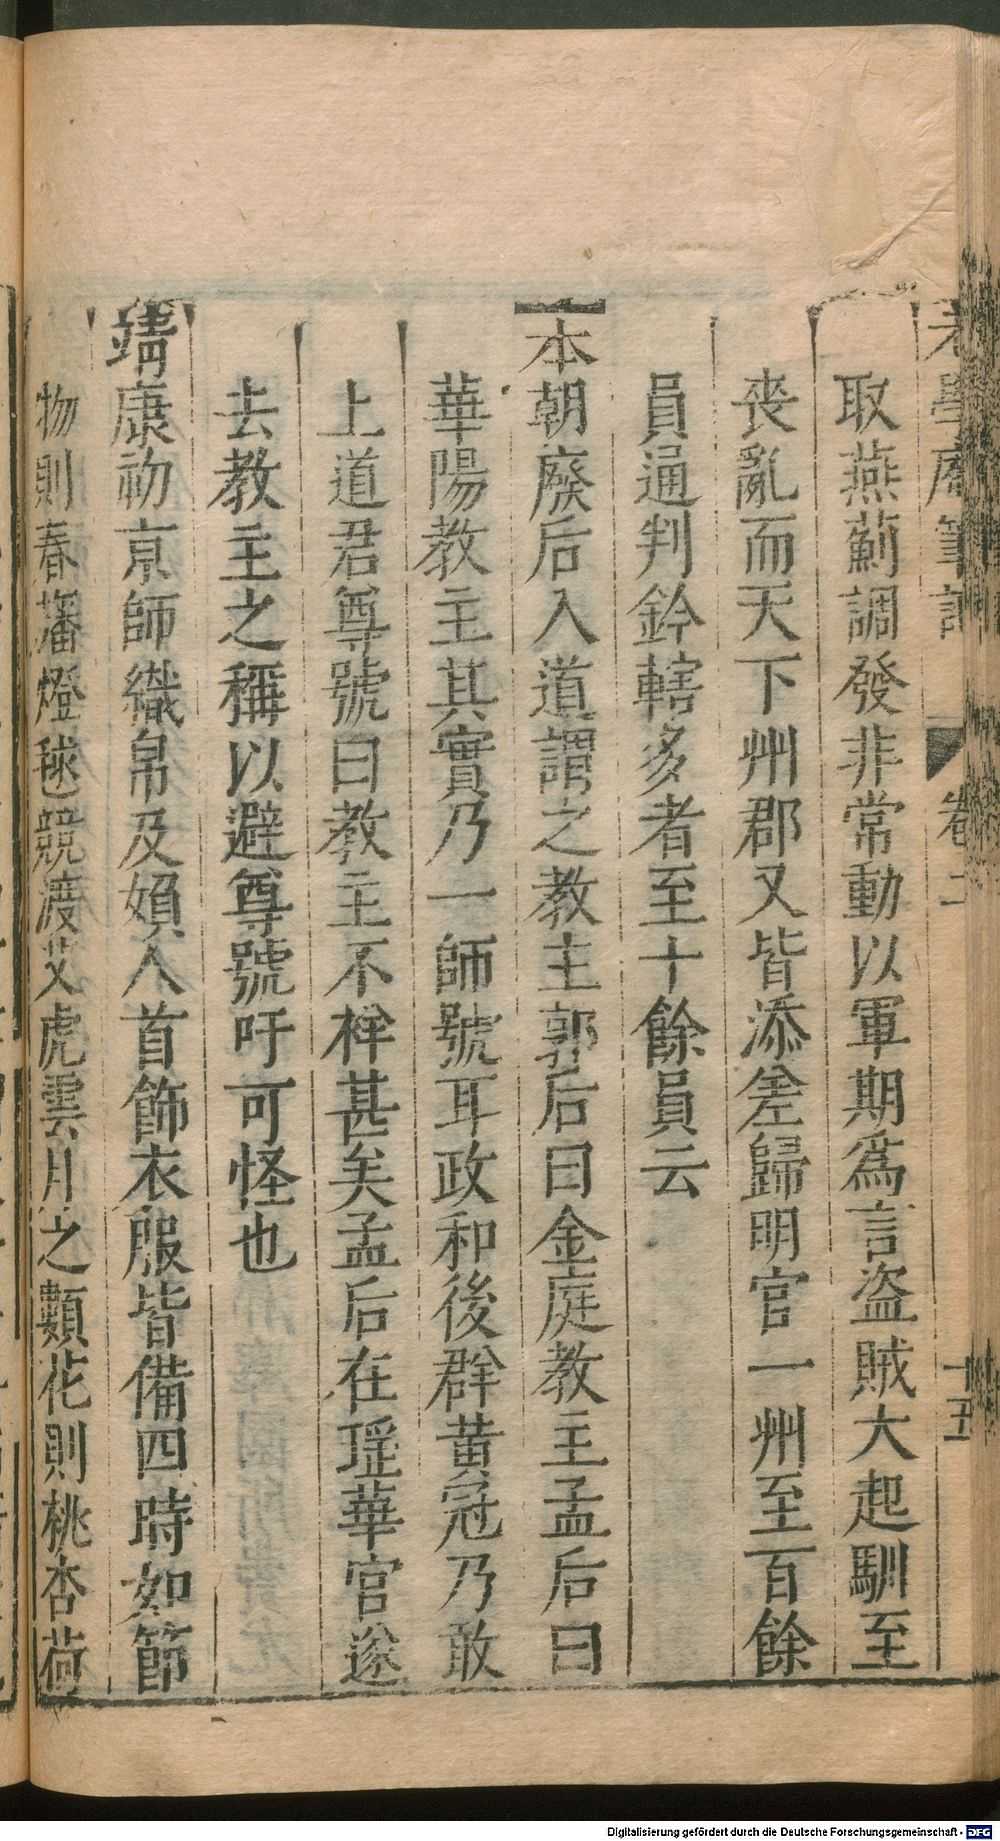 老學庵筆記 卷二 十五
取燕薊調發非常動以軍期爲言盜賊大起馴至
喪亂而天下州郡又皆添差歸明官一州至百餘
員通判鈐轄多者至十餘員云
本朝廢后入道謂之教主郭后曰金庭教主孟后曰
華陽教主其實乃一師號耳政和後群黃冠乃敢
上道君尊號曰教主不祥甚矣孟后在瑤華宮遂
去教主之稱以避尊號吁可怪也
靖康初京師織帛及婦人首飾衣服皆備四時如節
物則春旛燈毬競渡艾虎雲月之類花則桃杏荷
Digitalisierung gefördert durch die Deutsche Forschungsgemeinschaft - DFG